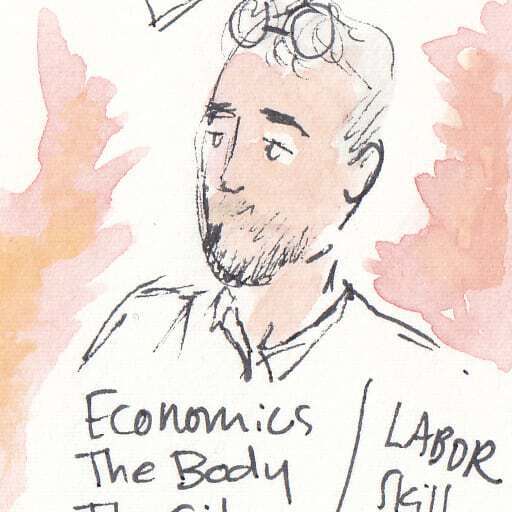 Economics
The Body
The
LABOR
Skill